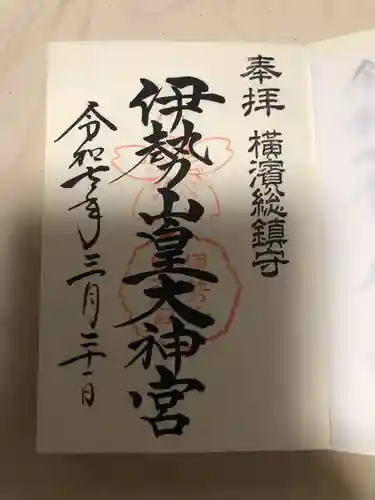 奉拝 横濱総鎮守
伊勢山皇大神宮
令和七年三月三十一日